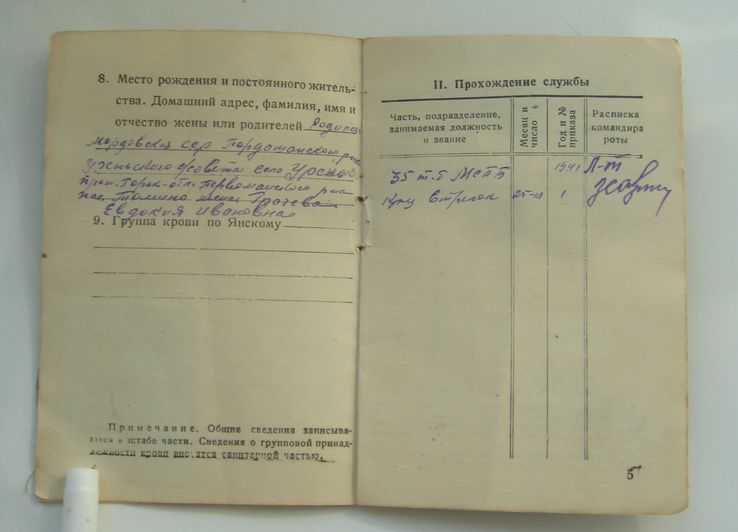 8. Место рождения и постоянного житель-
ства. Домашний адрес, фамилия, имя и
отчество жены или родителей Родился
мордовская сср
сельсовета село
прож. Горьк. обл. Первомайского р-на
Грачева
Евдокия Ивановна
9. Группа крови по Янскому
Примечание. Общие сведения записыва-
ются в штабе части. Сведения о групповой принад-
лежности крови вносятся санитарной частью.
II. Прохождение службы
Часть, подразделение,
занимаемая должность
и звание
Месяц и
число
Год и №
приказа
Расписка
командира
роты
35 т.б 1941 Л-т
стрелок 25-III 1
5